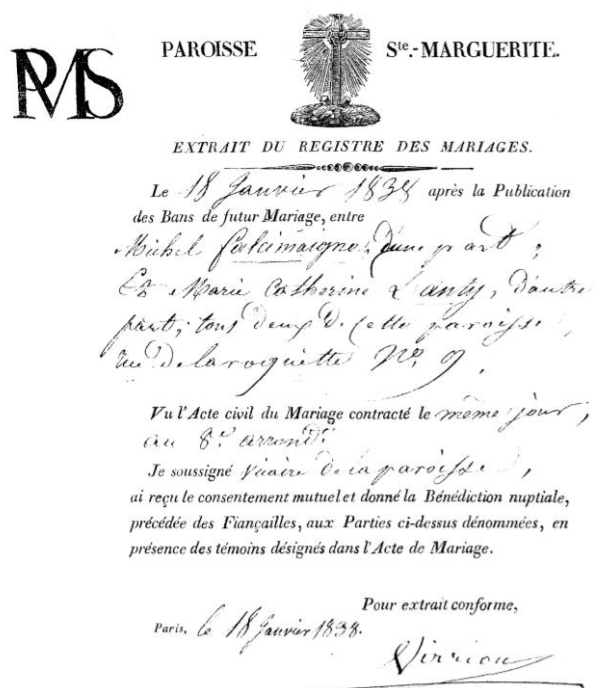 PMS
PAROISSE Ste.-MARGUERITE.
EXTRAIT DU REGISTRE DES MARIAGES.
Le 18 Janvier 1838 après la Publication
des Bans de futur Mariage, entre
Michel d'une part;
Et Marie Catherine Lanty, d'autre
part, tous deux de cette paroisse,
rue de la roquette No. 9.
Vu l'Acte civil du Mariage contracté le même jour,
au 8e. arrondt.
Je soussigné Vicaire de la paroisse,
ai reçu le consentement mutuel et donné la Bénédiction nuptiale,
précédée des Fiançailles, aux Parties ci-dessus dénommées, en
présence des témoins désignés dans l'Acte de Mariage.
Pour extrait conforme,
Paris, le 18 Janvier 1838.
Virrion